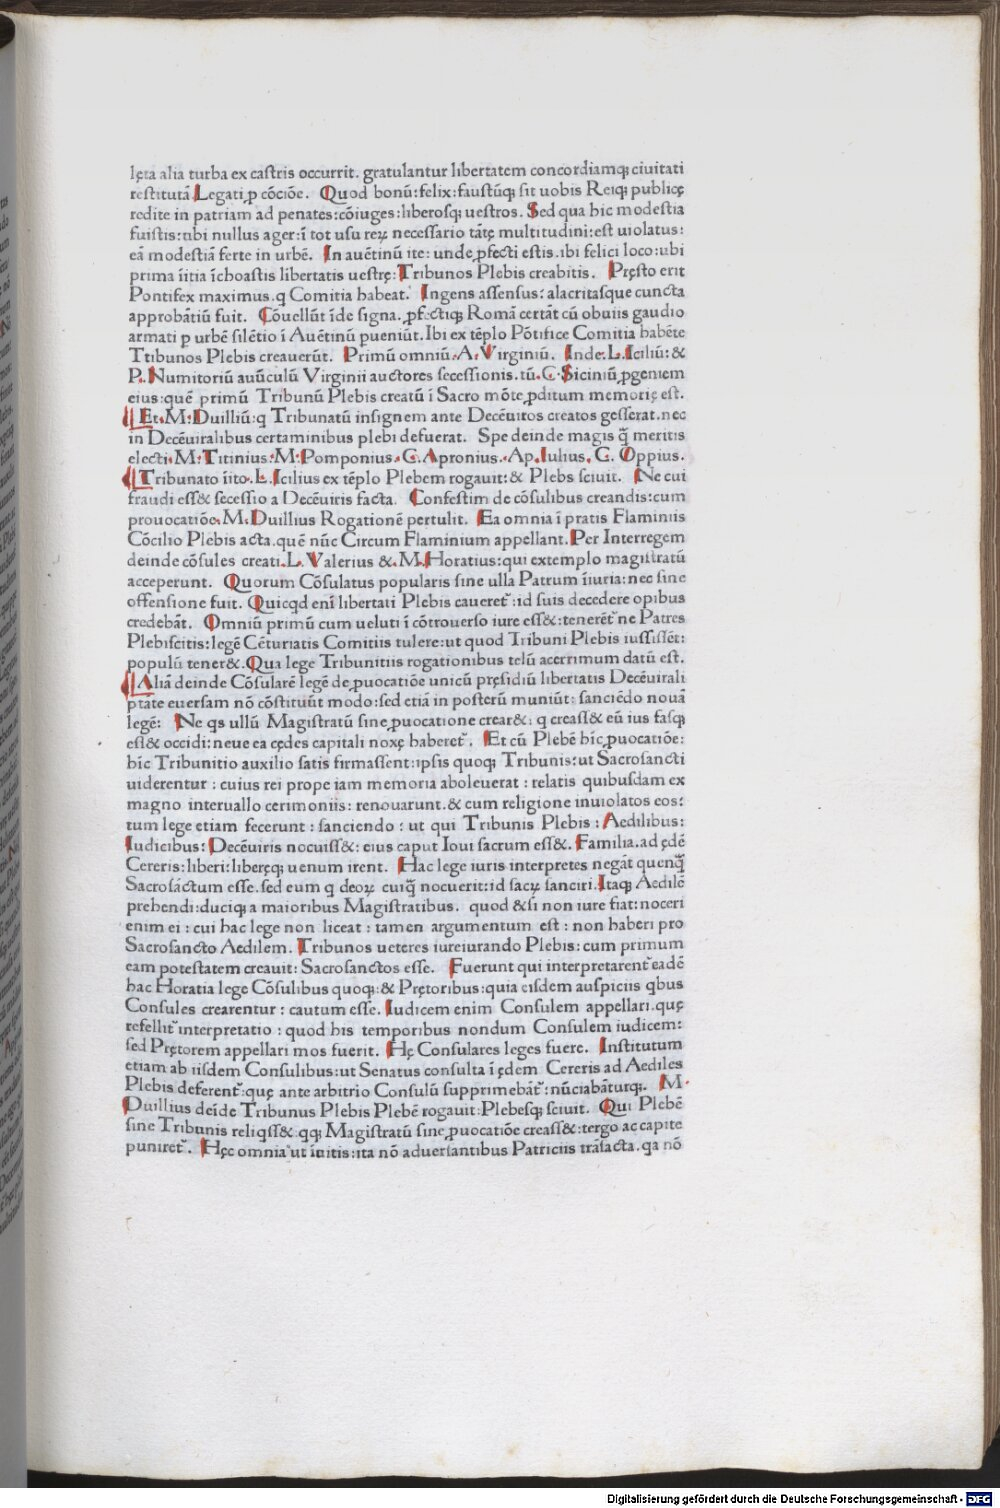 lęta alia turba ex castris occurrit. gratulantur libertatem concordiamqꝫ ciuitati
restitutā Legati ꝓ cōciōe. Quod bonū:felix:faustūqꝫ sit uobis Reiqꝫ publicę
redite in patriam ad penates:cōiuges:liberosqꝫ uestros. Sed qua hic modestia
fuistis:ubi nullus ager:ī tot usu reꝝ necessario tātę multitudini:est uiolatus:
eā modestiā ferte in urbē. In auētinū ite: unde ꝓfecti estis.ibi felici loco:ubi
prima īitia īchoastis libertatis uestrę:Tribunos Plebis creabitis. Pręsto erit
Pontifex maximus.q Comitia habeat. Ingens assensus: alacritasque cuncta
approbātiū fuit. Cōuellūt īde signa. ꝓfectiqꝫ Romā certāt cū obuiis gaudio
armati p urbē silētio ī Auētinū pueniūt. Ibi ex tēplo Pōtifice Comitia habēte
Ttibunos Plebis creauerūt. Primū omniū.A.Virginiū. Inde.L.Iciliū:&
P.Numitoriū auūculū Virginii auctores secessionis.tū.C.Siciniū ꝓgeniem
eius:quē primū Tribunū Plebis creatū ī Sacro mōte ꝓditum memorię est.
Et.M.Duilliū:q Tribunatū insignem ante Decēuiros creatos gesserat.nec
in Decēuiralibus certaminibus plebi defuerat. Spe deinde magis q̄ meritis
electi.M.Titinius.M.Pomponius.C.Apronius.Ap.Iulius.C.Oppius.
Tribunato īito.L.Icilius ex tēplo Plebem rogauit:& Plebs sciuit. Ne cui
fraudi ess& secessio a Decēuiris facta. Confestim de cōsulibus creandis:cum
prouocatiōe.M.Duillius Rogationē pertulit. Ea omnia ī pratis Flaminiis
Cōcilio Plebis acta.quē nūc Circum Flaminium appellant.Per Interregem
deinde cōsules creati.L.Valerius &.M.Horatius:qui extemplo magistratū
acceperunt. Quorum Cōsulatus popularis sine ulla Patrum īiuria:nec sine
offensione fuit. Quicqd enī libertati Plebis caueret᷑:id suis decedere opibus
credebāt. Omniū primū cum ueluti ī cōtrouerso iure ess&:tenerēt᷑ ne Patres
Plebiscitis:legē Cēturiatis Comitiis tulere:ut quod Tribuni Plebis iussissēt:
populū tener&.Qua lege Tribunitiis rogationibus telū acerrimum datū est.
Aliā deinde Cōsularē legē de ꝓuocatiōe unicū pręsidiū libertatis Decēuirali
ptāte euersam nō cōstituūt modo:sed etiā in posterū muniūt: sanciēdo nouā
legē: Ne qs ullū Magistratū sine ꝓuocatione crear&: q creass& eū ius fasqꝫ
ess& occidi:neue ea cędes capitali noxę haberet᷑. Et cū Plebē hīc ꝓuocatiōe:
hīc Tribunitio auxilio satis firmassent:ipsis quoqꝫ Tribunis:ut Sacrosancti
uiderentur : cuius rei prope iam memoria aboleuerat : relatis quibusdam ex
magno interuallo cerimoniis: renouarunt.& cum religione inuiolatos eos:
tum lege etiam fecerunt : sanciendo : ut qui Tribunis Plebis : Aedilibus:
Iudicibus: Decēuiris nocuiss&: eius caput Ioui sacrum ess&. Familia.ad ędē
Cereris:liberi:liberęqꝫ uenum irent. Hac lege iuris interpretes negāt quenq̄
Sacrosāctum esse.sed eum q deoꝝ cuiq̄ nocuerit:id sacꝝ sanciri.Itaqꝫ Aedilē
prehendi:duciqꝫ a maioribus Magistratibus. quod &si non iure fiat:noceri
enim ei : cui hac lege non liceat : tamen argumentum est : non haberi pro
Sacrosancto Aedilem. Tribunos ueteres iureiurando Plebis: cum primum
eam potestatem creauit: Sacrosanctos esse. Fuerunt qui interpretarent᷑ eadē
hac Horatia lege Cōsulibus quoqꝫ:& Prętoribus:quia eisdem auspiciis qbus
Consules crearentur : cautum esse. Iudicem enim Consulem appellari.quę
refellit᷑ interpretatio : quod his temporibus nondum Consulem iudicem:
sed Prętorem appellari mos fuerit. Hę Consulares leges fuere. Institutum
etiam ab iisdem Consulibus:ut Senatus consulta ī ędem Cereris ad Aediles
Plebis deferent᷑:quę ante arbitrio Consulū supprimebāt᷑: nūciabāturqꝫ. M.
Duillius deīde Tribunus Plebis Plebē rogauit:Plebesqꝫ sciuit. Qui Plebē
sine Tribunis reliqss&.qqꝫ Magistratū sine ꝓuocatiōe creass&:tergo ac capite
puniret᷑. Hęc omnia ut īuitis:ita nō aduersantibus Patriciis trāsacta.qa nō
Digitalisierung gefördert durch die Deutsche Forschungsgemeinschaft - DFG